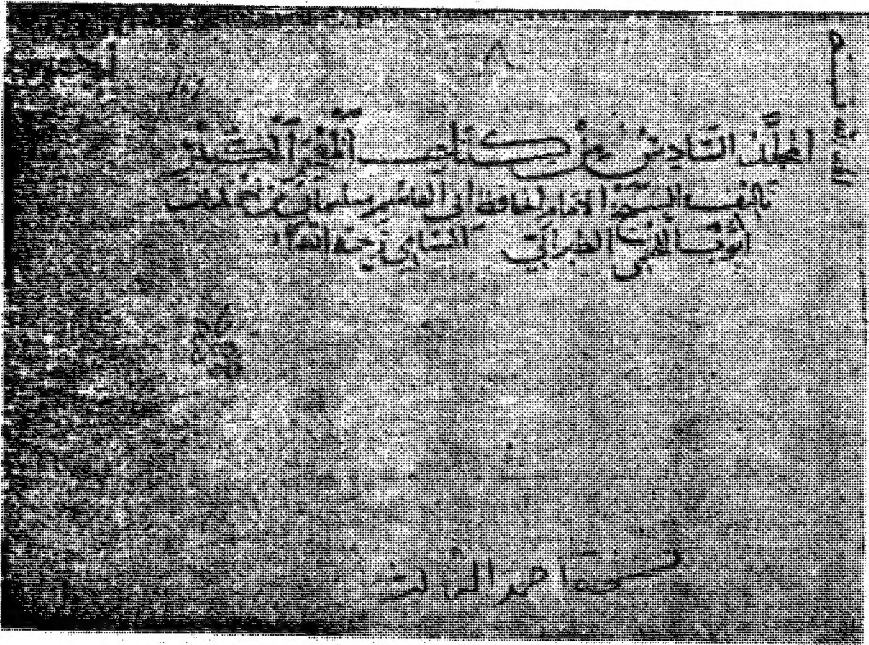 المجلد السادس من كتاب المعجم الكبير
تاليف الشيخ الامام الحافظ أبي القاسم سليمان بن احمد بن
أيوب اللخمي الطبراني الشامي رحمه الله
نسخة احمد الثالث